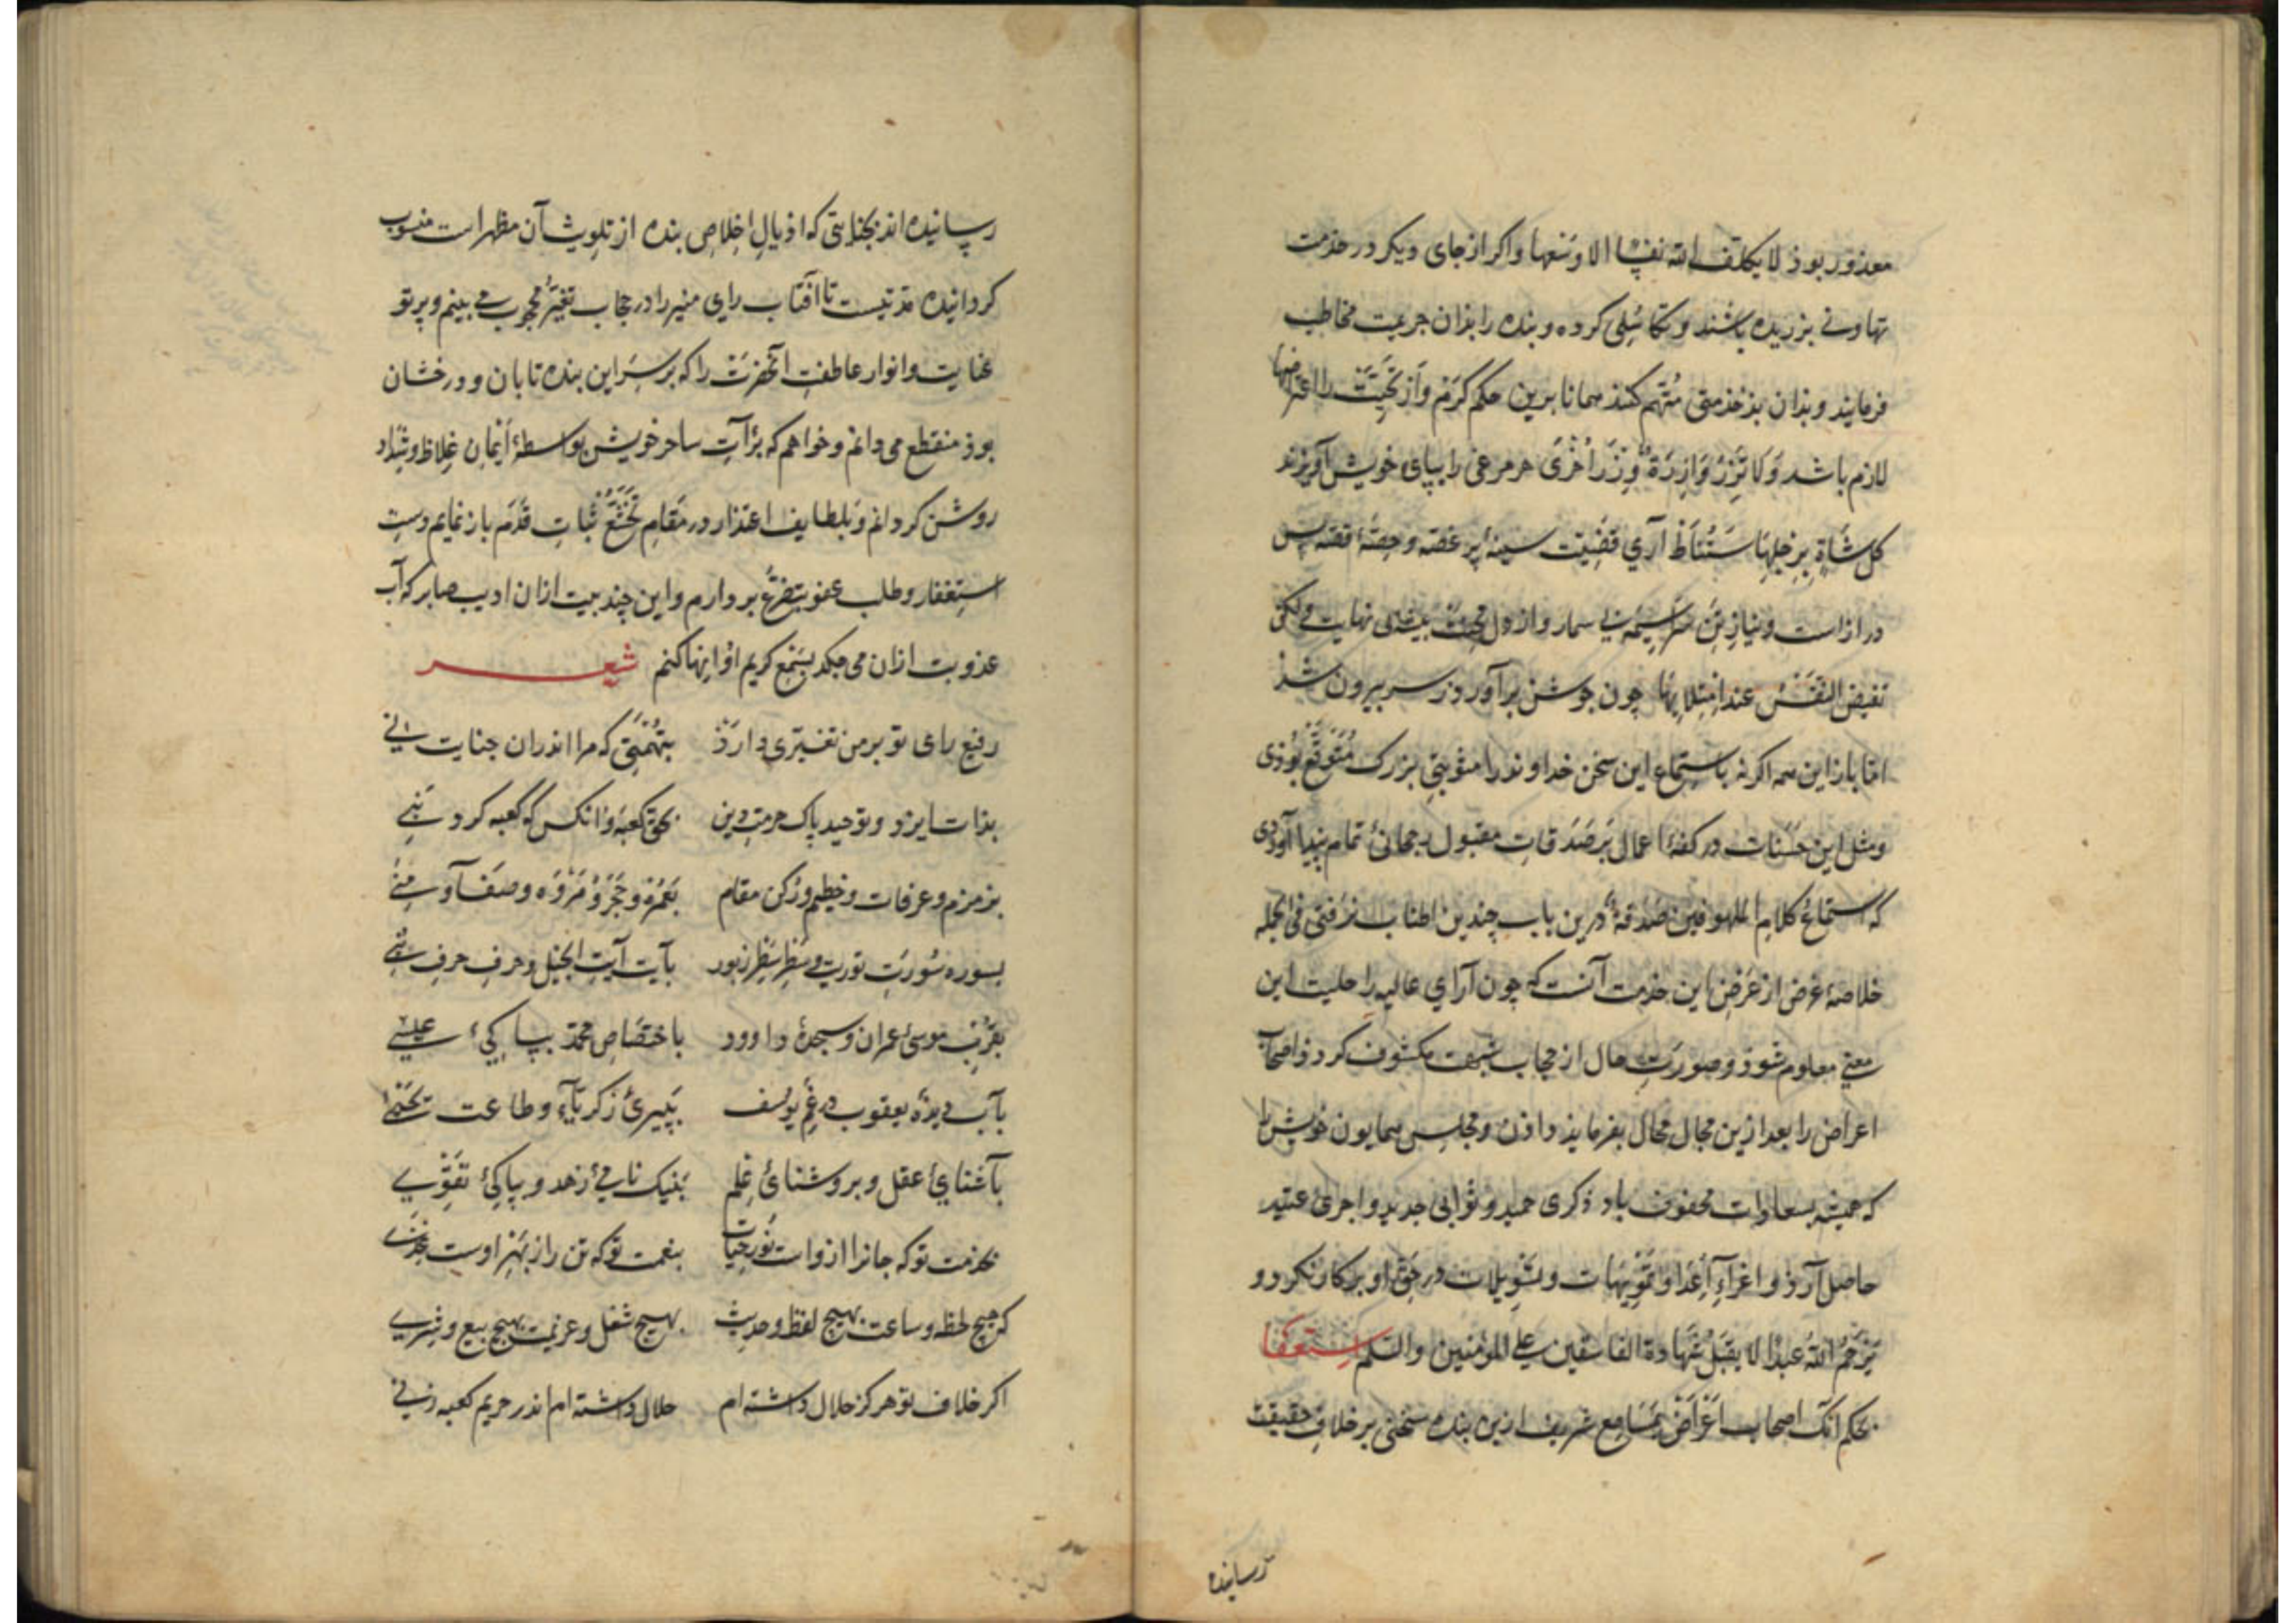 معذور بوذ لا یکلف الله نفسا الا وسعها واکر از جای دیکر در خذمت
تهاونی بزریده باشند و تکاسلی کرده و بنده را بذان جریمت مخاطب
فرمایند و بذان بذخذمتی متهم کنند همانا برین حکم کرم و از را
لازم باشد ولا تزر وازرة وزر اخری هر مرغی را بپای خویش آویزند
کل شاة برجلها ستناط آری قضیت سینهٔ پر غصه و حصهٔ قصه پس
دراز است و نیاز تن سراسیمه بی سمار و از دل نهایت ولکن
تفیض النفس عند امتلایها چون جوشن برآورد و ز سر بیرون شذ
اما باز این همه اکر نه باستماع این سخن خداوند را مثوبتی بزرک متوقع بوذی
ومثل این حسنات در کفهٔ اعمال بر صدقات مقبول رجحانی تمام پیدا آوردی
که استماع کلام الملهوفین صدقة درین باب چندین اطناب نرفتی فی الجمله
خلاصهٔ غرض از عرض این خذمت آنست که چون آرای عالیه را حلیت این
معنی معلوم شوذ و صورت حال از حجاب شبهت مکشوف کردذ اصحاب
اعراض را بعد ازین مجال محال بفرماید داذن و مجلس همایون خویش را
که همیشه بسعادات محفوف باد ذکری حمید و ثوابی جدید و اجری عتید
حاصل آرذ و اغراء اعدا و تمویهات و تسویلات در حق او بر کار نکردد و
یرحم الله عبدا لا یقبل شهادة الفاسقین علی المؤمنین والسلم استعفا
بحکم آنک اصحاب اغراض بمسامع شریف ازین بنده سخنی بر خلاف حقیقت
رسانیده
رسانیده اند بجنایتی که اذیال اخلاص بنده از تلویث آن مطهر است منسوب
کردانیده مدتیست تا آفتاب رای منیر را در حجاب تغیر محجوب می بینم و پرتو
عنایت و انوار عاطفت آنحضرت را که بر سر این بنده تابان و درخشان
بوذ منقطع می دانم و خواهم که برآت ساحت خویش بواسطهٔ ایمان غلاظ و شداد
روشن کردانم و بلطایف اعتذار در مقام تخشع ثبات قدم باز نمایم و دست
استغفار و طلب عفو بتضرع بردارم و این چند بیت از ان ادیب صابر که آب
عذوبت ازان می چکد بسمع کریم او انها کنم شعر
رفیع رای تو بر من تغیری دارذ بتهمتی که مرا اندران جنایت نی
بذات ایزد و توحید پاک حرمت دین بحق کعبه و انکس که کعبه کرد بنی
بزمزم و عرفات و حطیم و رکن مقام بعمره و حجر و مروه و صفا و منی
بسوره سورت توریت و سطر سطر زبور بآیت آیت انجیل و حرف حرف نبی
بقربت موسی عمران و سجدهٔ داوود باختصاص محمد بپاکیٔ عیسی
بآب دیدهٔ یعقوب در غم یوسف بپیریٔ زکریآء و طاعت یحیی
بآشنایی عقل و بروشنائی علم بنیک نامیٔ زهد و بپاکیٔ تقوی
بخذمت تو که جانرا ازو است نور حیات بنعمت تو که تن را ز بهر اوست
که هیچ لحظه و ساعت بهیچ لفظ و حدیث بهیچ شغل و عزیمت بهیچ بیع و شری
اکر خلاف تو هرکز حلال داشته ام حلال داشته ام اندر حریم کعبه زنی